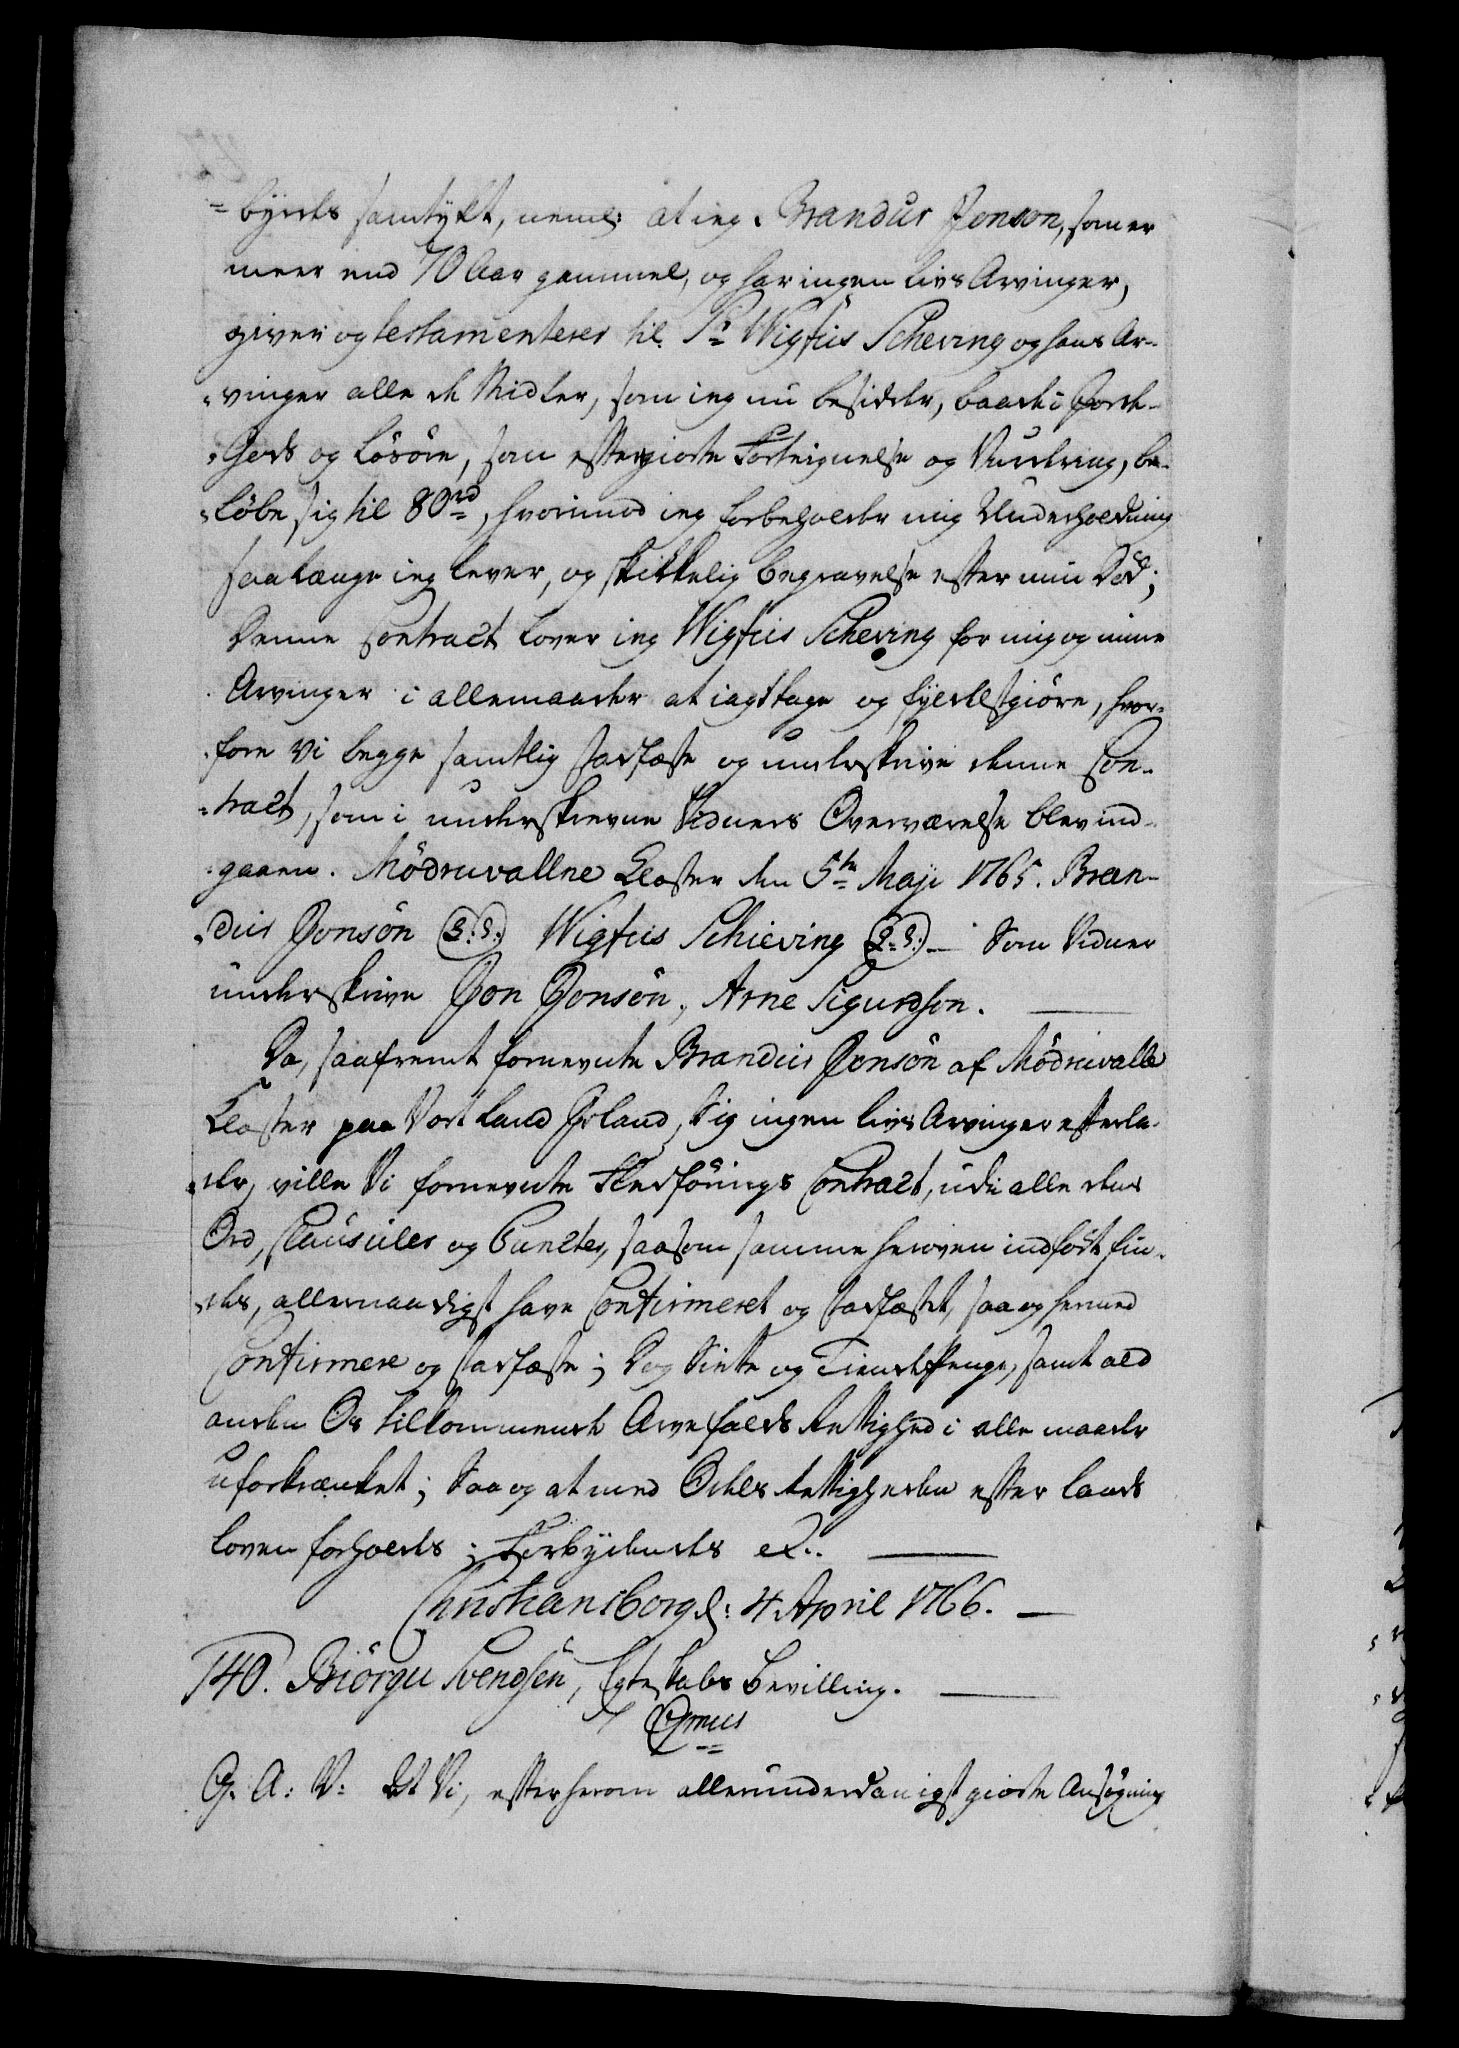 -byrds samtykt, neml: at ieg, Brandus Jonson, som er
meer end 70 Aar gammel, og har ingen Livs Arvinger,
giver og testamenterer til Sr Wigfus Scheving og hans Ar-
-vinger alle de Midler, som ieg nu besidder, baade i Jorde-
-Gods og Løsøre, som efter giorte Forteignelse og Vurdering, be-
-løbe sig til 80rd, hvorimod ieg forbeholder mig Underholdning
saalænge ieg lever, og skikkelig begravelse efter min Død;
Denne Contract lover ieg Wigfus Scheving for mig og mine
Arvinger i allemaader at iagttage og fyldestgiøre, hvor-
-fore vi begge samtlig stadfæste og underskrive denne Con-
-tract, som i underskrevne Vidners Overværelse blev ind-
-gaaen. Mödruvallne Closter den 5te Maji 1765. Bran-
-dus Jonsön (L.S.) Wigfus Schieving (L.S.) — Som Vidner
underskrive Jon Jonsön, Arne Sigurdson.
Da, saafremt fornevnte Brandus Jonsön af Mödruvalle
Closter paa Vort Land Island, sig ingen Livs Arvinger efterla-
-der, ville Vi fornevnte Fledførings Contract, udi alle dens
Ord, Clausuler og Puncter, saasom samme heroven indført fin-
-des, allernaadigst have Confirmeret og stadfæstet, saa og hermed
Confirmere og stadfæste; Dog Siette og Tiende Penge, samt ald
anden Os tilkommende Arvefalds Rettighed i alle maader
uforkrænket; Saa og at med Odels Rettigheden efter Lands
Loven forholdes; Forbydendes etc.
Christiansborg d: 4 April 1766.
140. Biörgu Svendsön, Egteskabs Bevilling.
Gmus
G. A: V: At Vi, efter herom allerunderdanigst giorte Ansøgning